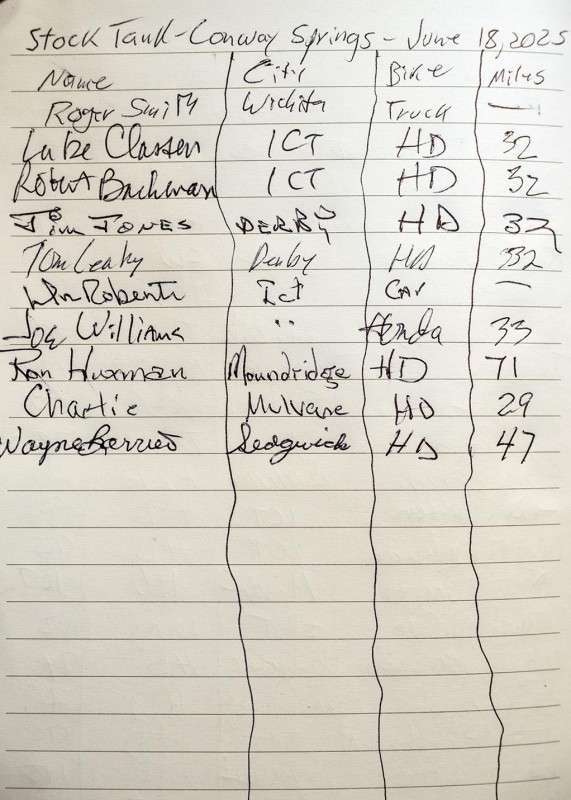 Stock Tank - Conway Springs - June 18, 2025
Name City Bike Miles
Roger Smith Wichita Truck —
Luke Classen ICT HD 32
Robert Bachman ICT HD 32
Jim JONES DERBY HD 32
Tom Leahy Derby HD 332
Wm Roberts Ict CAR —
Joe Williams " Honda 33
Ron Huxman Moundridge HD 71
Charlie Mulvane HD 29
Wayne Sedgwick HD 47